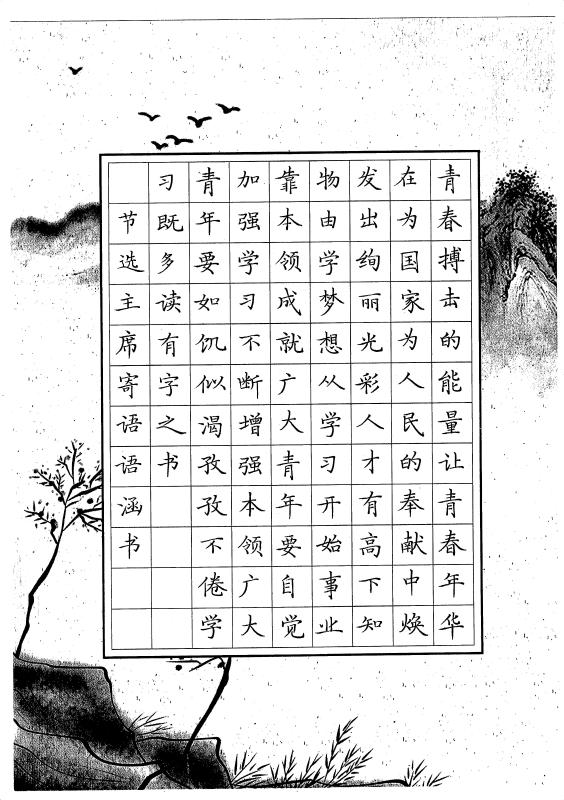 青春搏击的能量让青春年华
在为国家为人民的奉献中焕
发出绚丽光彩人才有高下知
物由学梦想从学习开始事业
靠本领成就广大青年要自觉
加强学习不断增强本领广大
青年要如饥似渴孜孜不倦学
习既多读有字之书
节选主席寄语语涵书